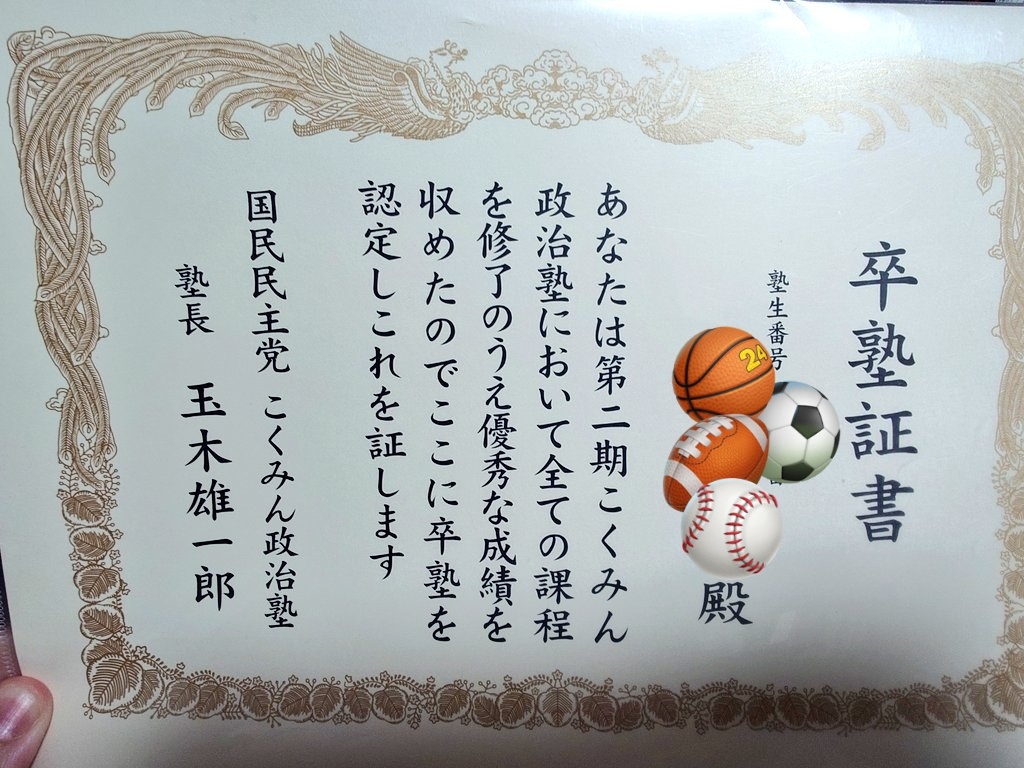 卒塾証書
塾生番号
殿
あなたは第二期こくみん
政治塾において全ての課程
を修了のうえ優秀な成績を
収めたのでここに卒塾を
認定しこれを証します
国民民主党 こくみん政治塾
塾長 玉木雄一郎
24